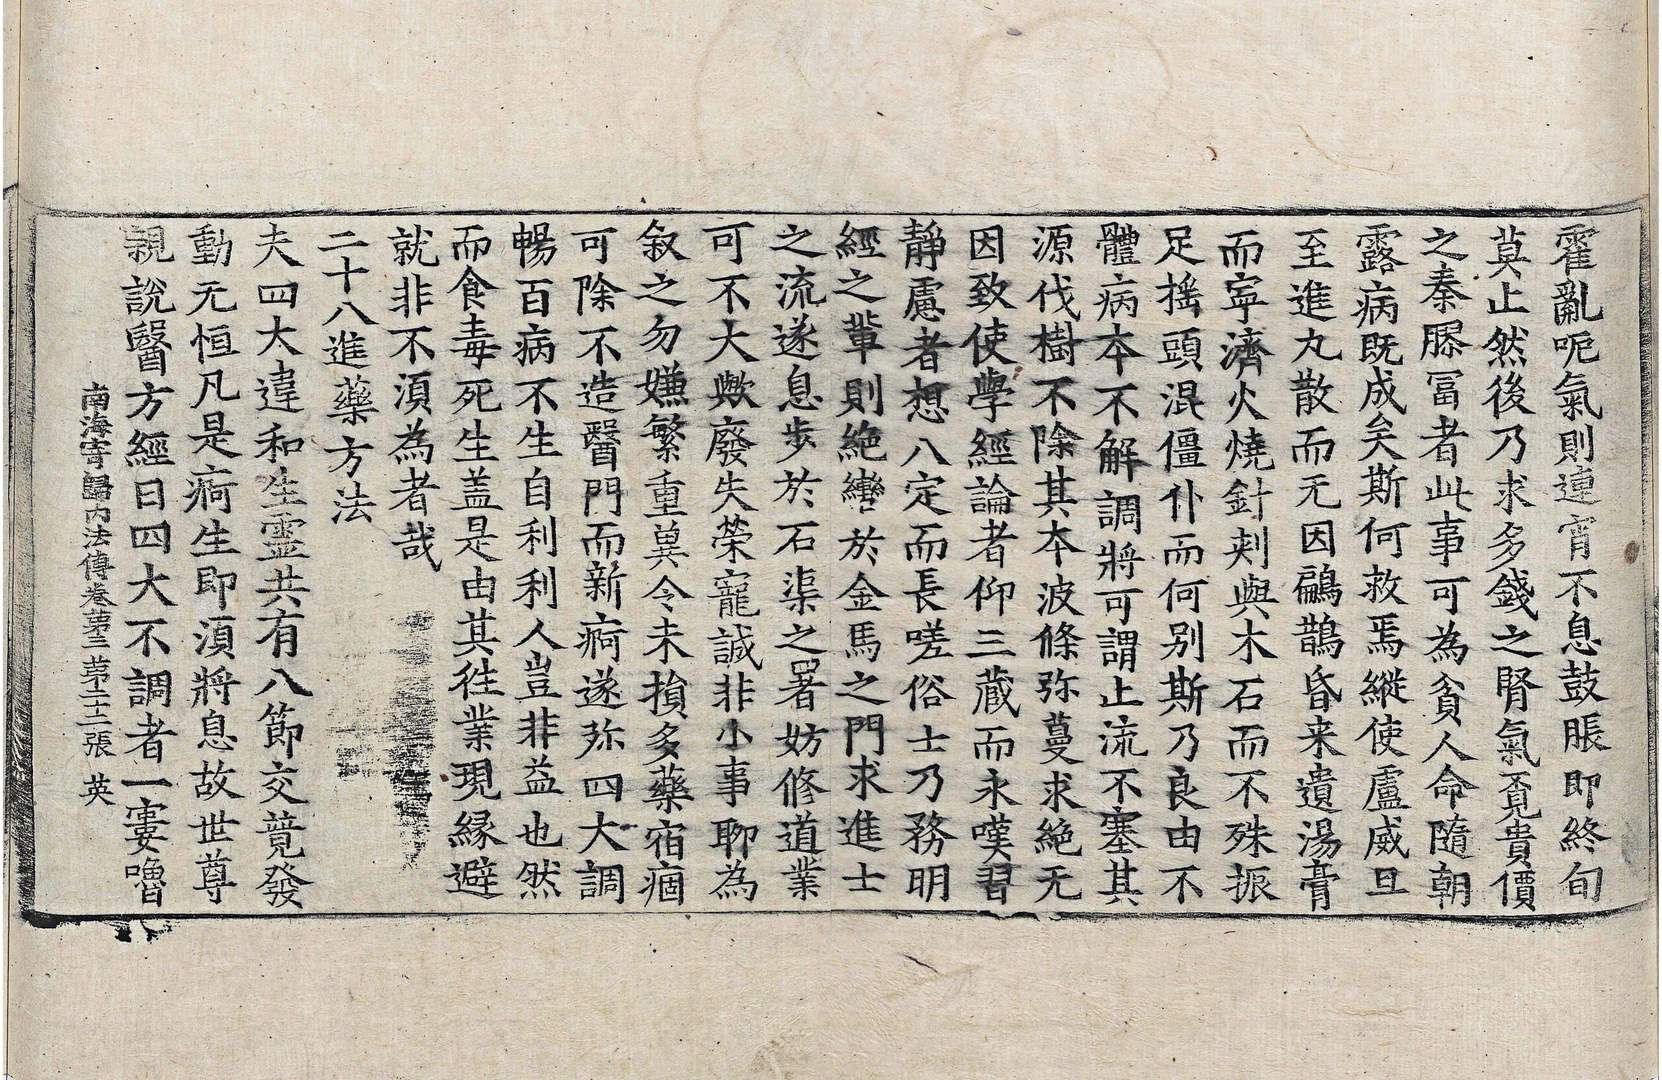 霍亂呃氣則連宵不息鼓脹即終旬
莫止然後乃求多錢之腎氣覔貴價
之秦膠冨者此事可為貧人命隨朝
露病既成矣斯何救焉縱使盧威旦
至進丸散而无因鷊鵲昏来遺湯膏
而寧濟火燒針刾與木石而不殊振
足揺頭混僵仆而何别斯乃良由不
體病本不解調將可謂止流不塞其
源伐樹不除其本波條弥蔓求絶无
因致使學經論者仰三藏而永嘆習
靜慮者想八定而長嗟俗士乃務明
經之輩則絶轡於金馬之門求進士
之流遂息步於石渠之署妨修道業
可不大歟廢失榮寵誠非小事聊為
叙之勿嫌繁重冀令未損多藥宿痼
可除不造醫門而新痾遂殄四大調
暢百病不生自利利人豈非益也然
而食毒死生盖是由其往業現縁避
就非不湏為者哉
二十八進藥方法
夫四大違和生靈共有八節交競發
動无恒凡是痾生即湏將息故世尊
親說醫方經曰四大不調者一窶嚕
南海寄歸内法傳卷第三 第十二張 英